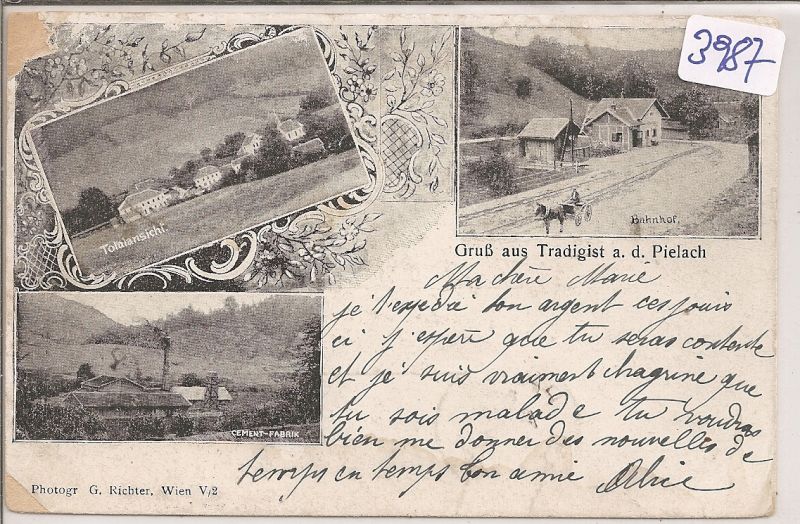 3987
Totalansicht.
Bahnhof.
Gruß aus Tradigist a. d. Pielach
CEMENT-FABRIK
Ma chère Marie
je t'expedié ton argent ces jours
ci j'espère que tu seras contente
et je suis vraiment chagrine que
tu sois malade tu voudras
bien me donner des nouvelles de
temps en temps ton amie Alice
Photogr G. Richter, Wien V/2